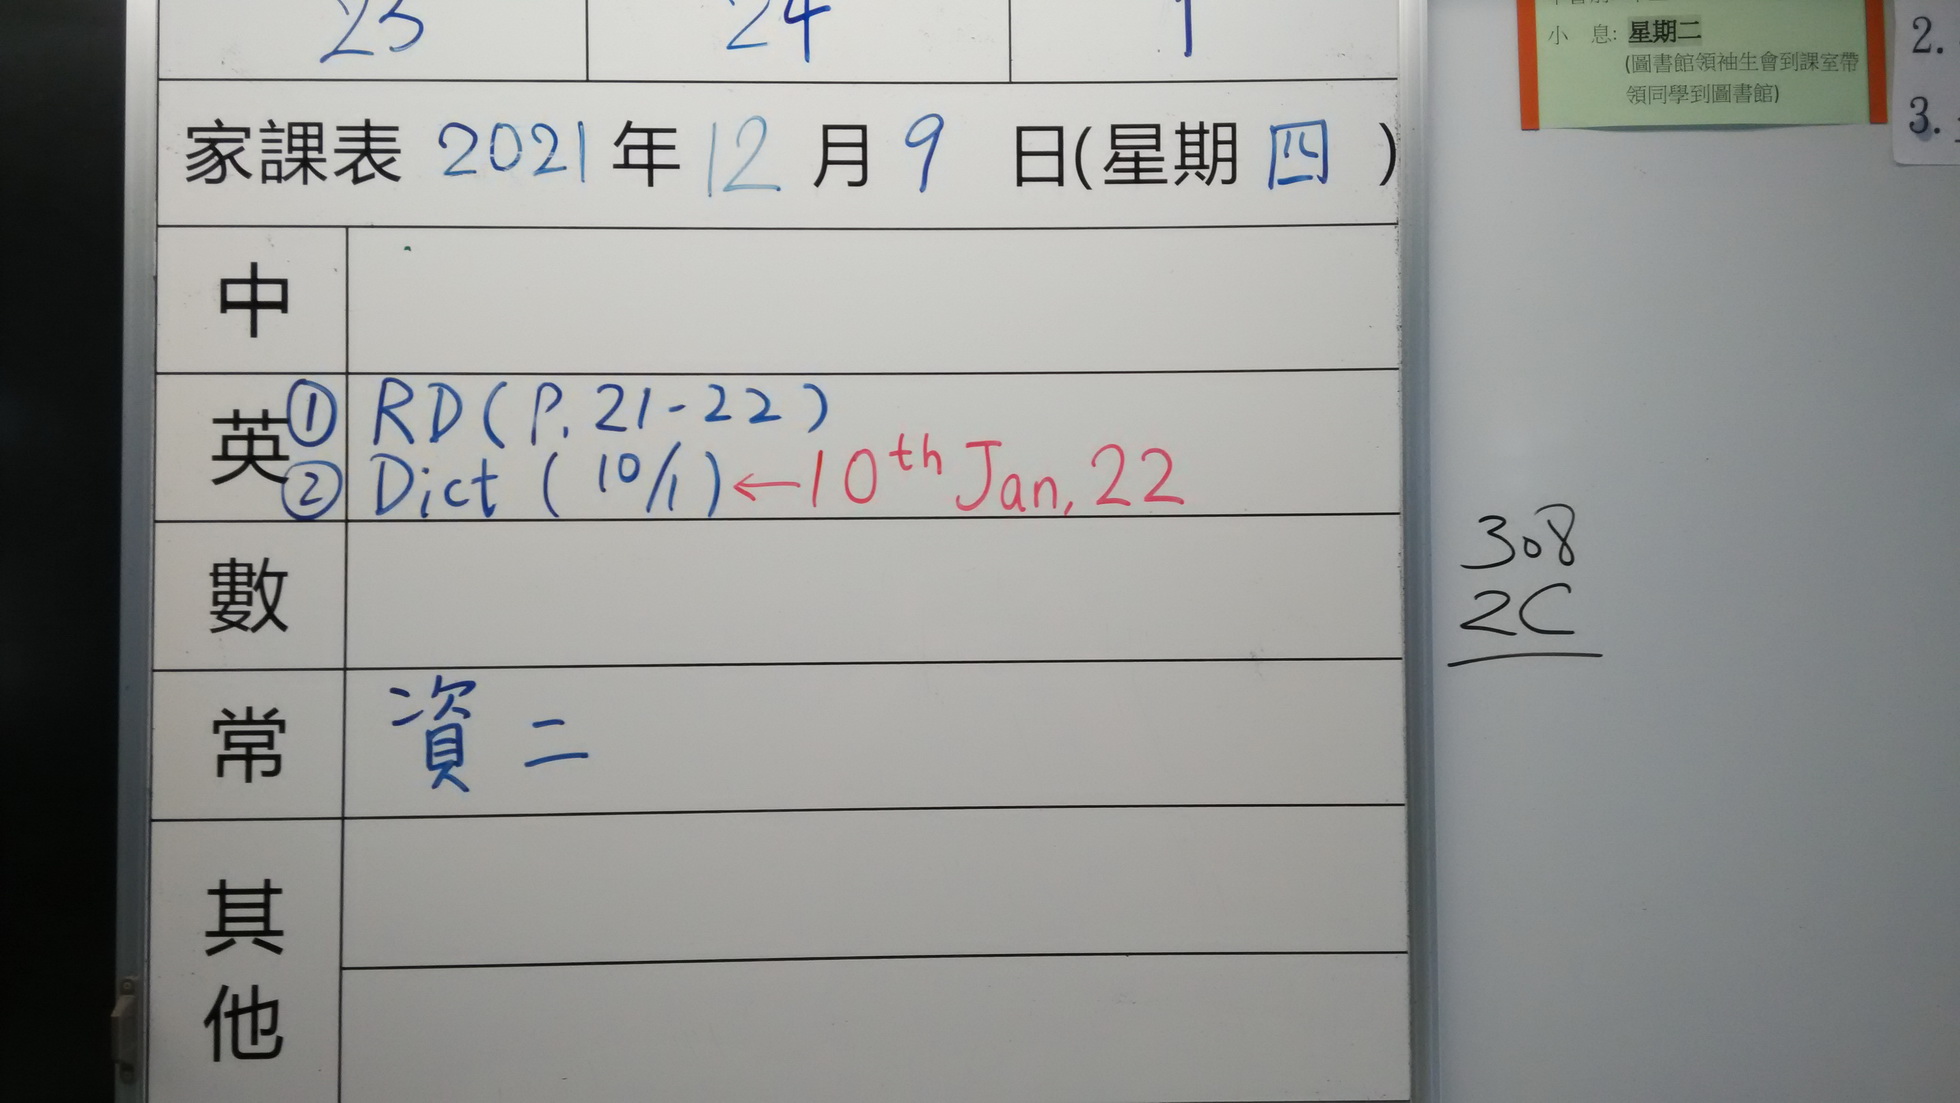 23 24 1
家課表 2021 年 12 月 9 日(星期 四 )
中
英 ① RD (P. 21-22)
② Dict ( 10/1) ← 10th Jan, 22
數
常 資 二
其
他
小 息: 星期二
(圖書館領袖生會到課室帶
領同學到圖書館)
2.
3.
308
2C